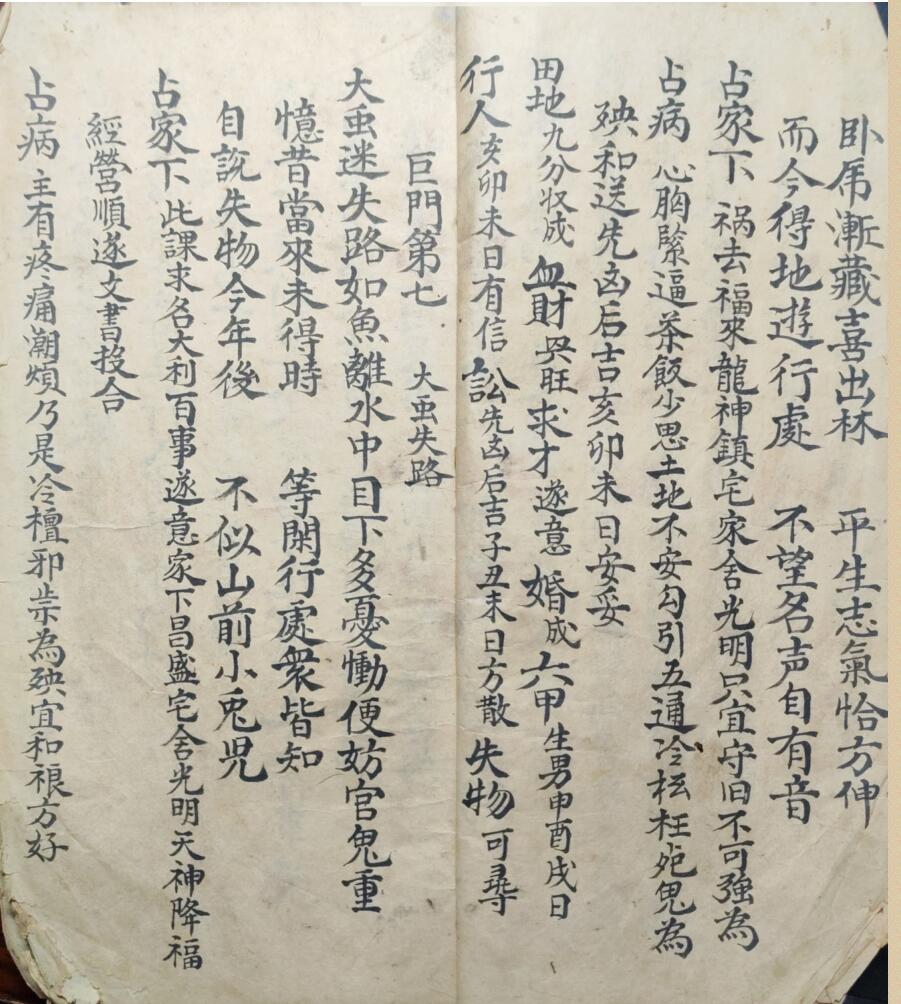 卧虎漸藏喜出林　平生志氣恰方伸
而今得地遊行處　不望名声自有音
占家下　祸去福來龍神鎮宅家舍光明只宜守旧不可強為
占病　心胸緊逼茶飯少思土地不安勾引五通冷枉死鬼為
殃和送先凶后吉亥卯未日安妥
田地九分收成　血財興旺　求才遂意　婚成　六甲生男申酉戌日
行人亥卯未日有信　訟先凶后吉子丑未日方散　失物可尋
巨門第七　大虫失路
大虫迷失路如魚離水中目下多憂慟便妨官鬼重
憶昔當來未得時　等閑行處衆皆知
自說失物今年後　不似山前小兎児
占家下　此課求名大利百事遂意家下昌盛宅舍光明天神降福
經營順遂文書投合
占病　主有疼痛潮煩乃是冷檀邪祟為殃宜和禳方好